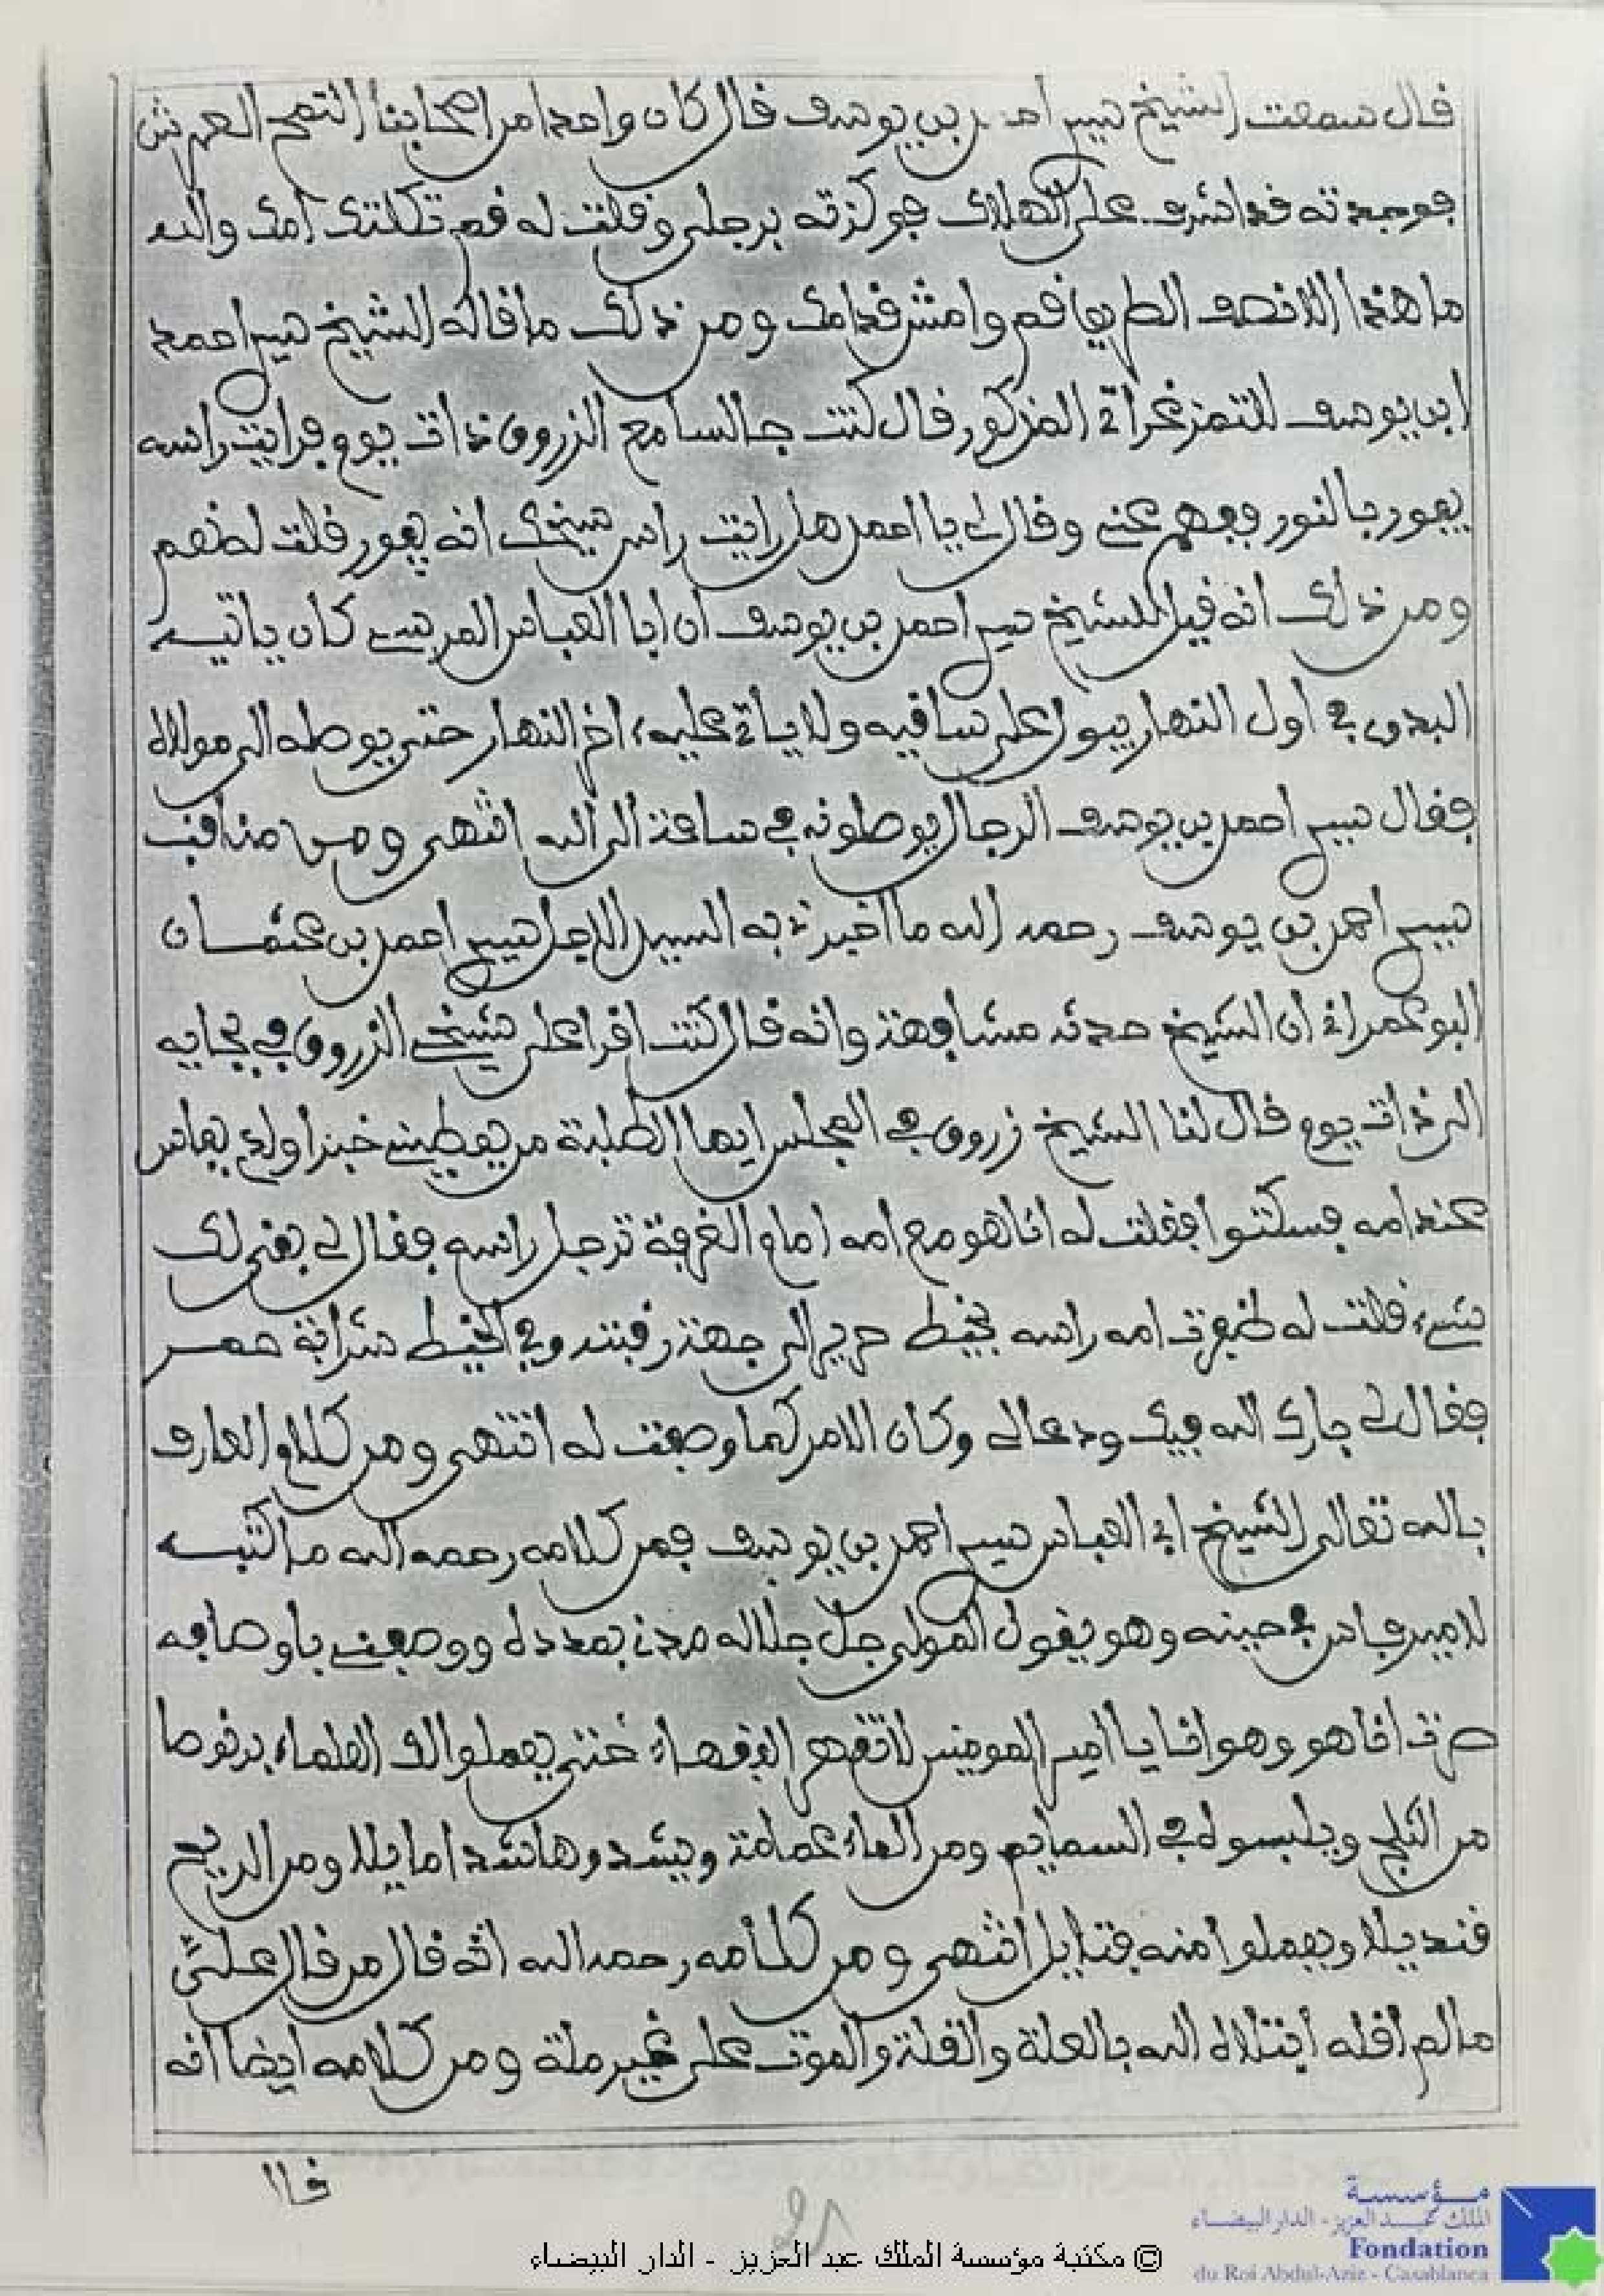 قال سمعت الشيخ سيدي احمد بن يوسف قال كان واحدا من اصحابنا التمح العرش
فوجدته قد اشرف على الهلاك فوكزته برجلي وقلت له قم ثكلتك امك والله
ما هذا الا نصف الطريق قم وامش قدامك ومن ذلك ما قاله الشيخ سيدي احمد
ابن يوسف للتمزغراني المذكور قال كنت جالسا مع الزروق ذات يوم فرايت راسه
يفور بالنور ففهم عني وقال لي يا احمد هل رايت راس شيخك انه يفور قلت له نعم
ومن ذلك انه قيل للشيخ سيدي احمد بن يوسف ان ابا العباس المرسي كان ياتيه
البدوي في اول النهار يبول على ساقيه ولا ياتي عليه اخر النهار حتى يوصله الى مولاه
فقال سيدي احمد بن يوسف الرجال يوصلونه في ساعة الى الله انتهى ومن مناقب
سيدي احمد بن يوسف رحمه الله ما اخبرني به السيد الاجل سيدي احمد بن عثمان
البوعمراني ان الشيخ حدثه مشافهة وانه قال كنت اقرا على شيخي الزروق في بجاية
الى ذات يوم قال لنا الشيخ زروق في المجلس ايها الطلبة من يعطيني خبر اولدي بفاس
عند امه فسكتوا فقلت له انا هو مع امه امام الغرفة ترجل راسه فقال لي بقي لك
شيء قلت له ظفرت امه راسه بخيط حرير الى جهة رقبته وفي الخيط شرابة حمر
فقال لي بارك الله فيك ودعا لي وكان الامر كما وصفت له انتهى ومن كلام العارف
بالله تعالى الشيخ ابي العباس سيدي احمد بن يوسف فمن كلامه رحمه الله ما كتبه
لامير فاس في حينه وهو يقول المولى جل جلاله مدني بمدده ووصفني باوصافه
صرت انا هو وهو انا يا امير المومنين لا تقهر الفقهاء حتى يعملوا لك العلماء برنوصا
من الثلج ويلبسوه في السمايم ومن الماء عمامة ويشدوها شدا مايلا ومن الريح
قنديلا ويعملوا منه فتايل انتهى ومن كلامه رحمه الله انه قال من قال علي
ما لم اقله ابتلاه الله بالعلة والقلة والموت على غير ملة ومن كلامه ايضا انه
قال
مؤسسة
الملك عبد العزيز - الدار البيضاء
Fondation
du Roi Abdul-Aziz - Casablanca
© مكتبة مؤسسة الملك عبد العزيز - الدار البيضاء